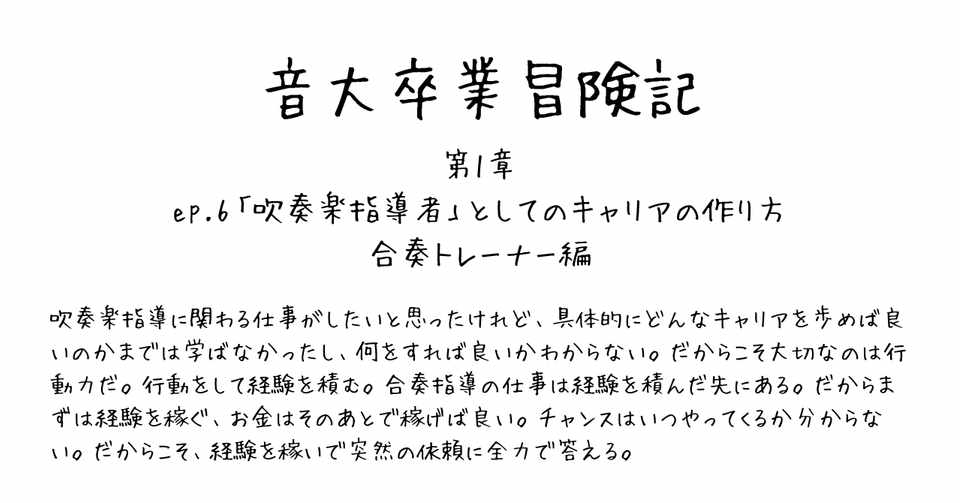 音大卒業冒険記
第1章
ep.6「吹奏楽指導者」としてのキャリアの作り方
合奏トレーナー編
吹奏楽指導に関わる仕事がしたいと思ったけれど、具体的にどんなキャリアを歩めば良
いのかまでは学ばなかったし、何をすれば良いかわからない。だからこそ大切なのは行
動力だ。行動をして経験を積む。合奏指導の仕事は経験を積んだ先にある。だからま
ずは経験を稼ぐ、お金はそのあとで稼げば良い。チャンスはいつやってくるか分からな
い。だからこそ、経験を稼いで突然の依頼に全力で答える。